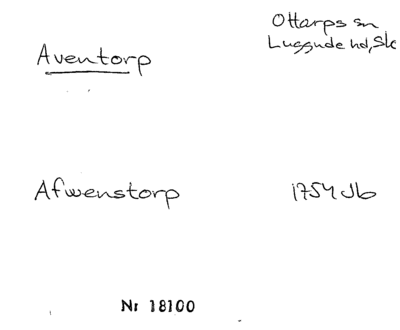 Ottarps sn
Aventorp
Luggude hd, Sk
Afwenstorp 1754 Jb
Nr 18100